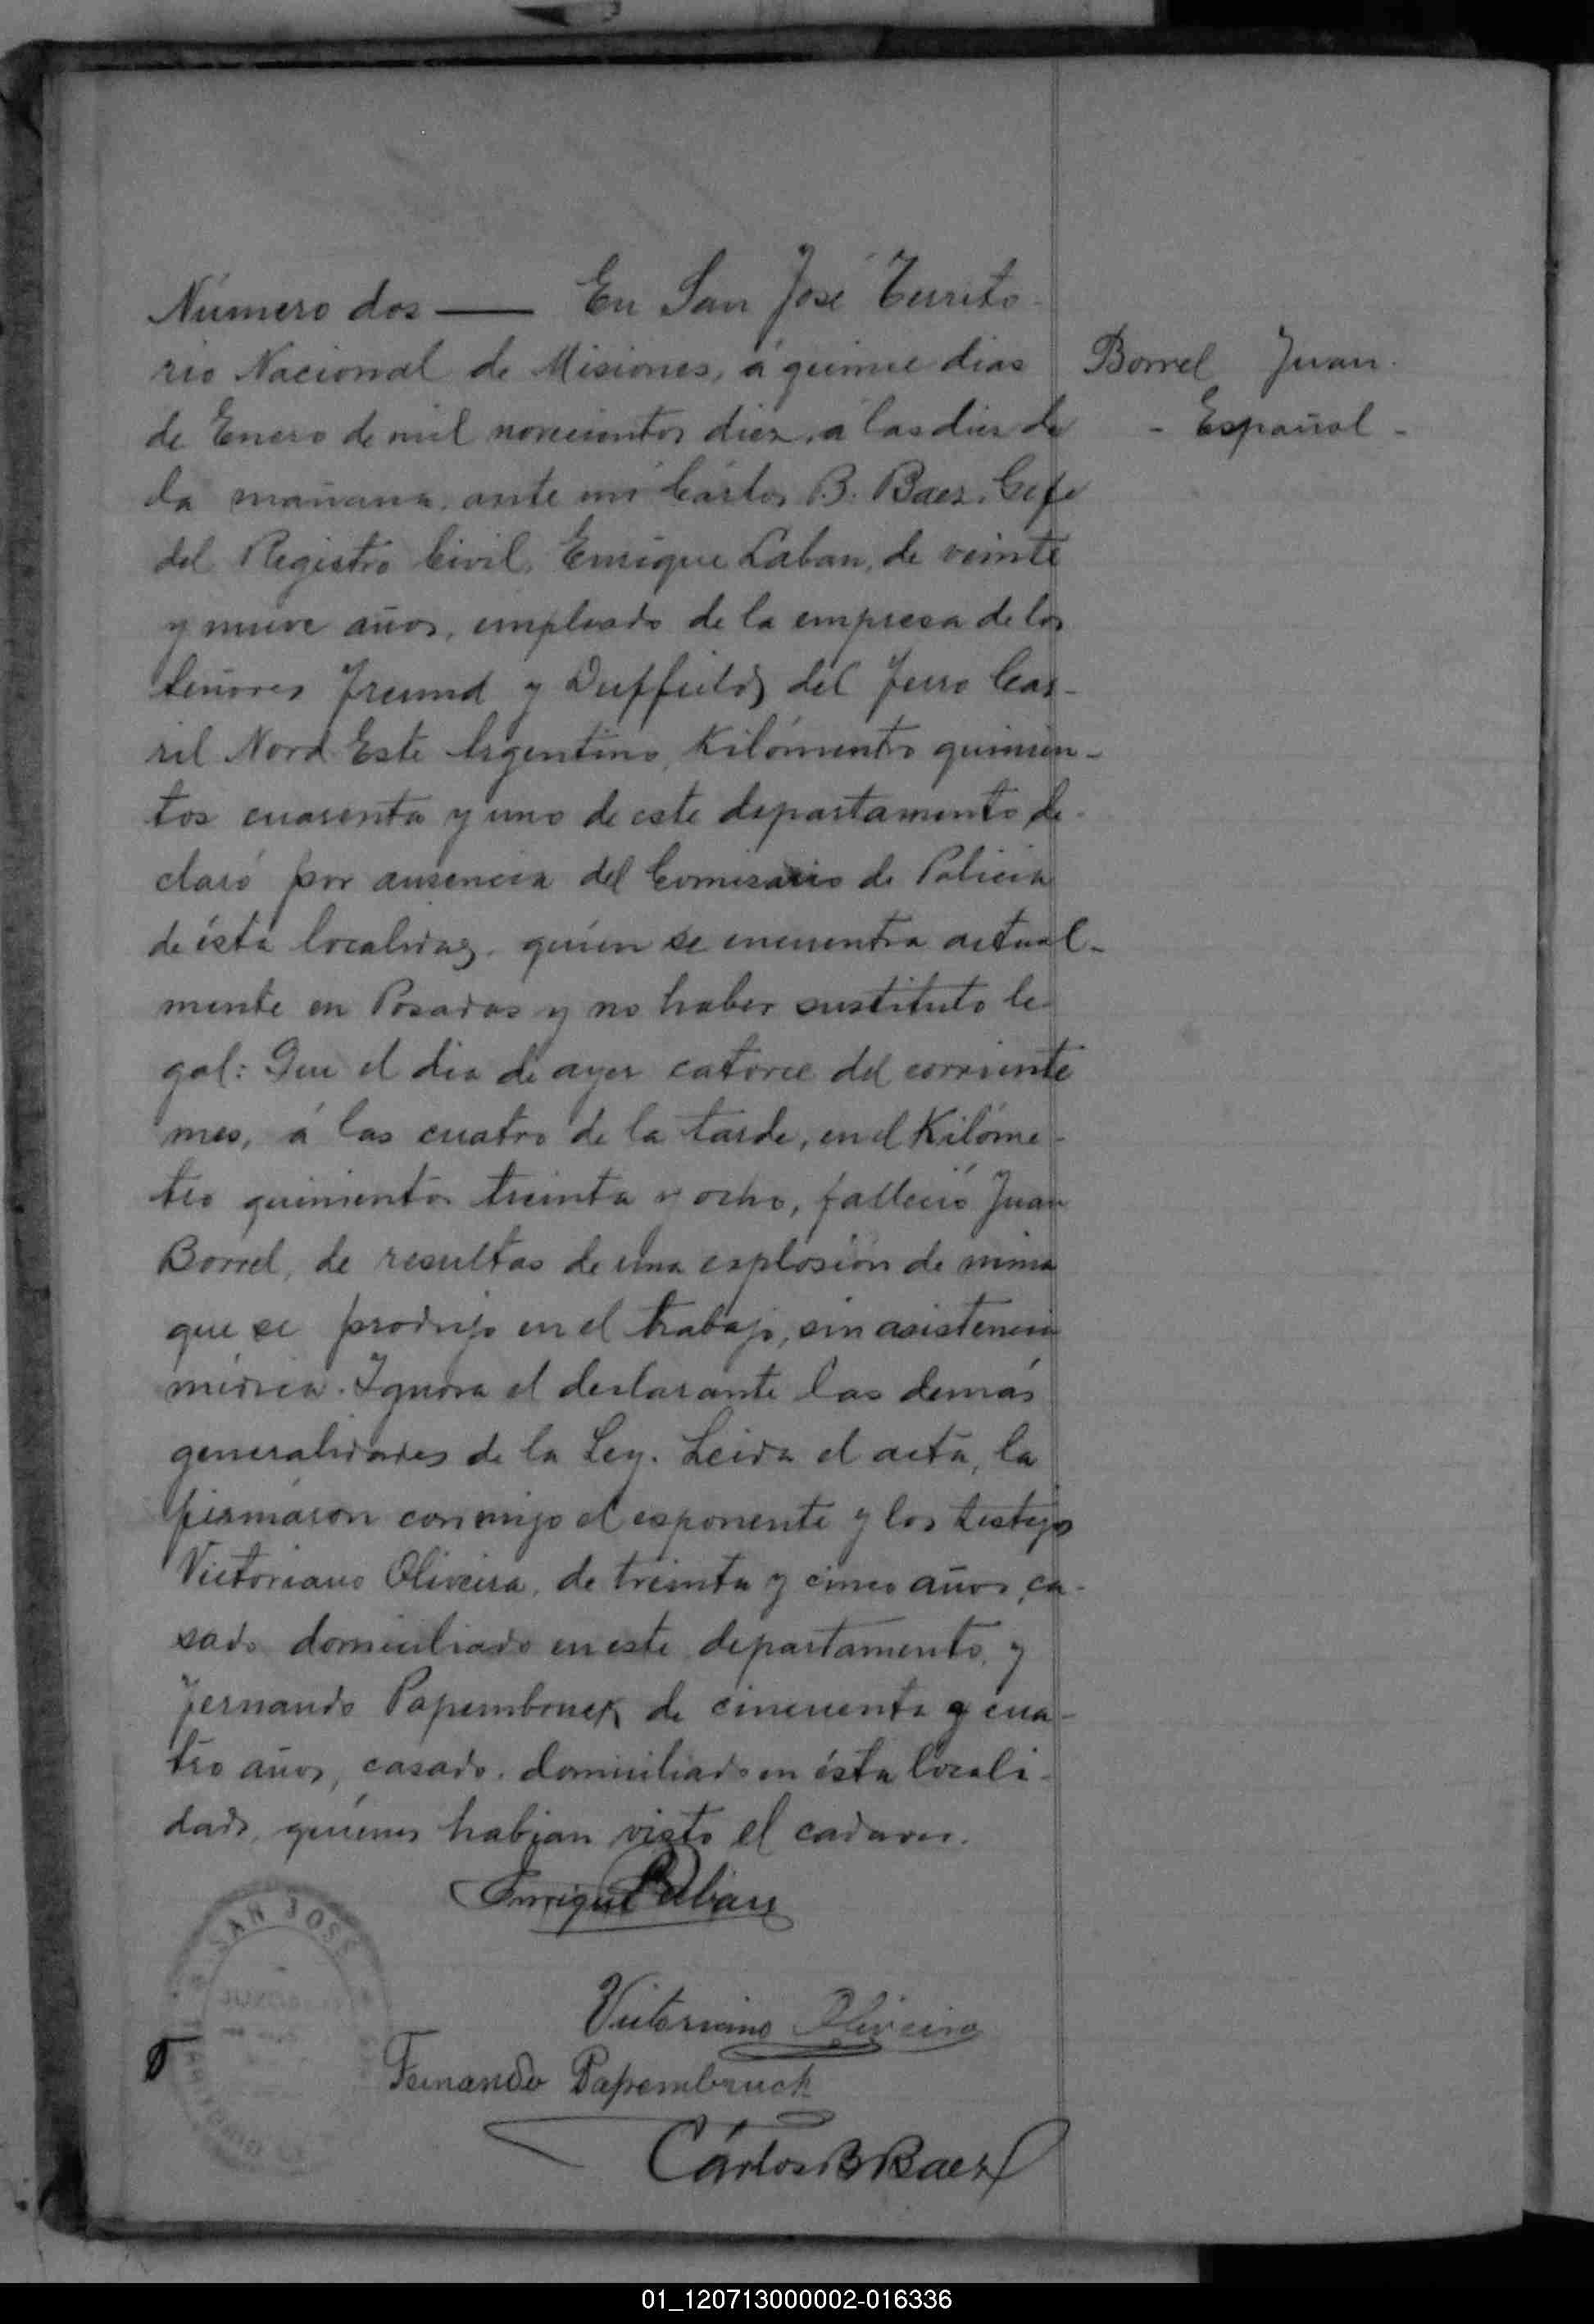 Número dos — En San José Territo-
rio Nacional de Misiones, á quince dias
de Enero de mil novecientos diez, á las diez de
la mañana, ante mi Cárlos B. Baez, Gefe
del Registro Civil, Enrique Laban, de veinte
y nueve años, empleado de la empresa de los
Señores Freund y Duffield, del Ferro Car-
ril Nord Este Argentino, Kilómentro quinien-
tos cuarenta y uno de este departamento de-
claró por ausencia del Comisario de Policia
de ésta localidad, quíen se encuentra actual-
mente en Posadas y no haber sustituto le-
gal: Que el dia de ayer catorce del corriente
mes, á las cuatro de la tarde, en el Kilóme-
tro quinientos treinta y ocho, falleció Juan
Borrel, de resultas de una esplosión de mina
que se produjo en el trabajo, sin asistencia
médica. Ignora el declarante las demás
generalidades de la Ley. Leida el acta, la
firmáron conmigo el esponente y los testigos
Victoriano Oliveira, de treinta y cinco años, ca-
sado domiciliado en este departamento, y
Fernando Papembruck de cincuenta y cua-
tro años, casado, domiciliado en ésta locali-
dad, quíenes habian visto el cadaver.
Borrel Juan.
- Español -
Enrique Laban
Victoriano Oliveira
Fernando Papembruck
Cárlos B Baez
SAN JOSÉ
01_120713000002-016336